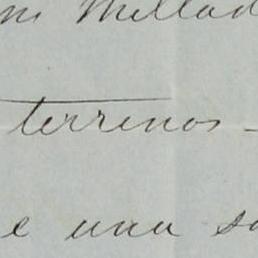 Millad
terrenos -
e una so